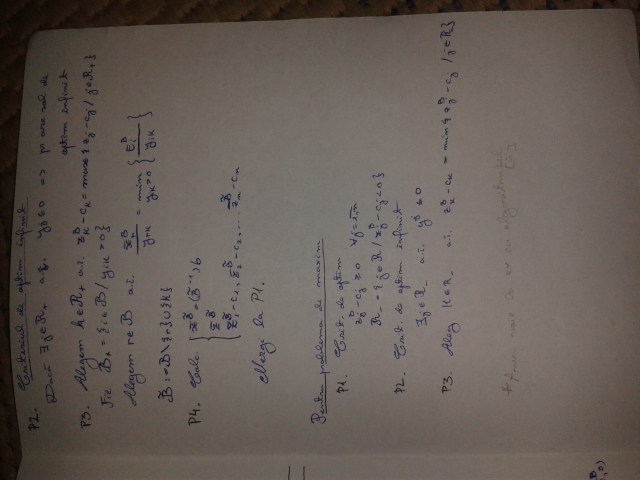 P2. Criteriul de optim infinit
Dacă ∃ j∈R₊ a.î. yj ≤ 0 => pr are sol de
optim infinit
P3. Alegem k∈R₊ a.î. z_k^B - c_k = max{z_j - c_j / j∈R₊}
Fie B₊ = {i∈B / y_ik > 0}
Alegem r∈B a.î. x̄_r^B / y_rk = min_{y_ik>0} { x̄_i^B / y_ik }
B̃ := B\{r}∪{k}
P4. Calc. { x̄^B̃ = (B̃⁻¹)b
z̄^B̃
z̄_1^B̃ - c_1, z̄_2^B̃ - c_2, ... z̄_n^B̃ - c_n
Mergi la P1.
Pentru problema de maxim
P1. Crit. de optim
z_j^B - c_j ≥ 0 ∀j=1,n
R₋ = {j∈R / z_j^B - c_j < 0}
P2. Crit. de optim infinit
∃ j∈R₋ a.î. y^j ≤ 0
P3. Aleg k∈R₋ a.î. z_k^B - c_k = min{z_j^B - c_j / j∈R₋}
algoritmul
B
, 0)